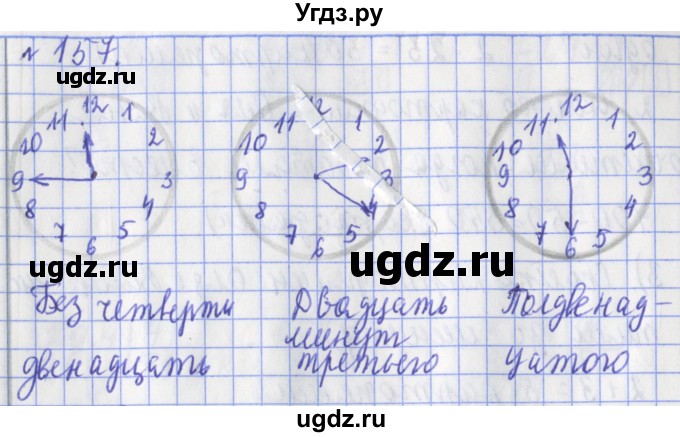 Угдз.ру
№ 157.
ugdz.ru
ugdz.ru
11 12 1
10 2
9 3
8 4
7 6 5
11 12 1
10 2
9 3
8 4
7 6 5
11 12 1
10 2
9 3
8 4
7 6 5
ugdz.ru
ugdz.ru
Без четверти
двенадцать
Двадцать
минут
третьего
Полдвенад-
цатого
ugdz.ru
ugdz.ru